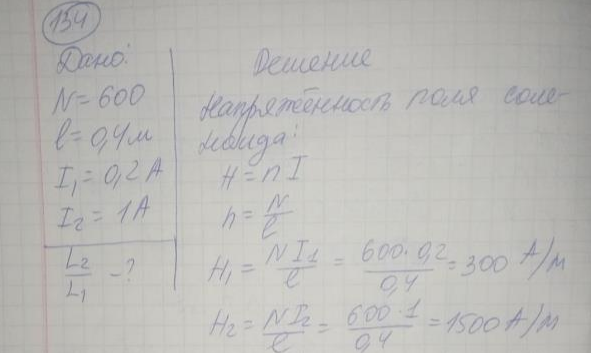 134
Дано:
N = 600
l = 0,4 м
I₁ = 0,2 A
I₂ = 1 A
L₂/L₁ - ?
Решение
Напряжённость поля соле-
ноида:
H = n I
n = N/l
H₁ = NI₁/l = 600·0,2/0,4 = 300 А/м
H₂ = NI₂/l = 600·1/0,4 = 1500 А/м